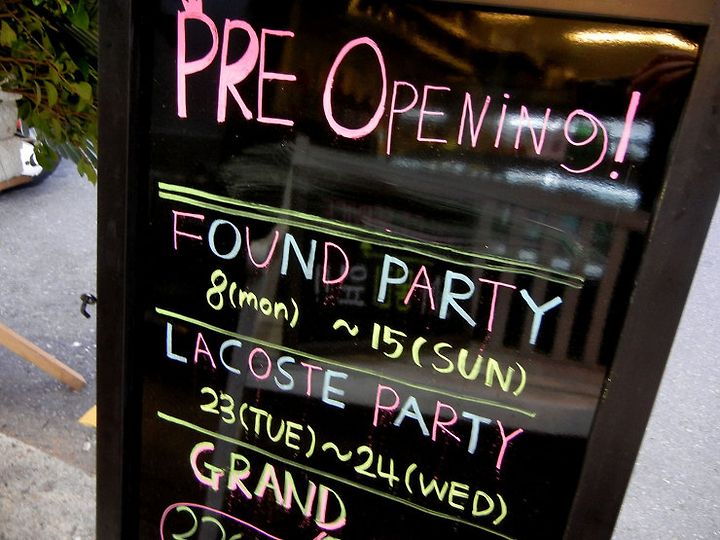 PRE OPENiNg!
FOUND PARTY
8(mon) ~15(SUN)
LACOSTE PARTY
23(TUE)~24(WED)
GRAND